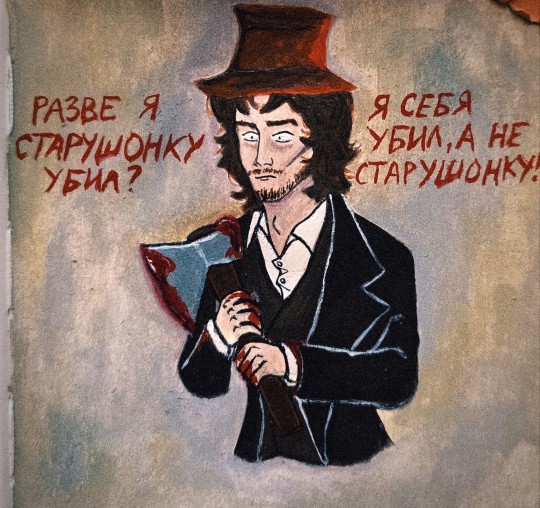 РАЗВЕ Я
СТАРУШОНКУ
УБИЛ?
Я СЕБЯ
УБИЛ, А НЕ
СТАРУШОНКУ!